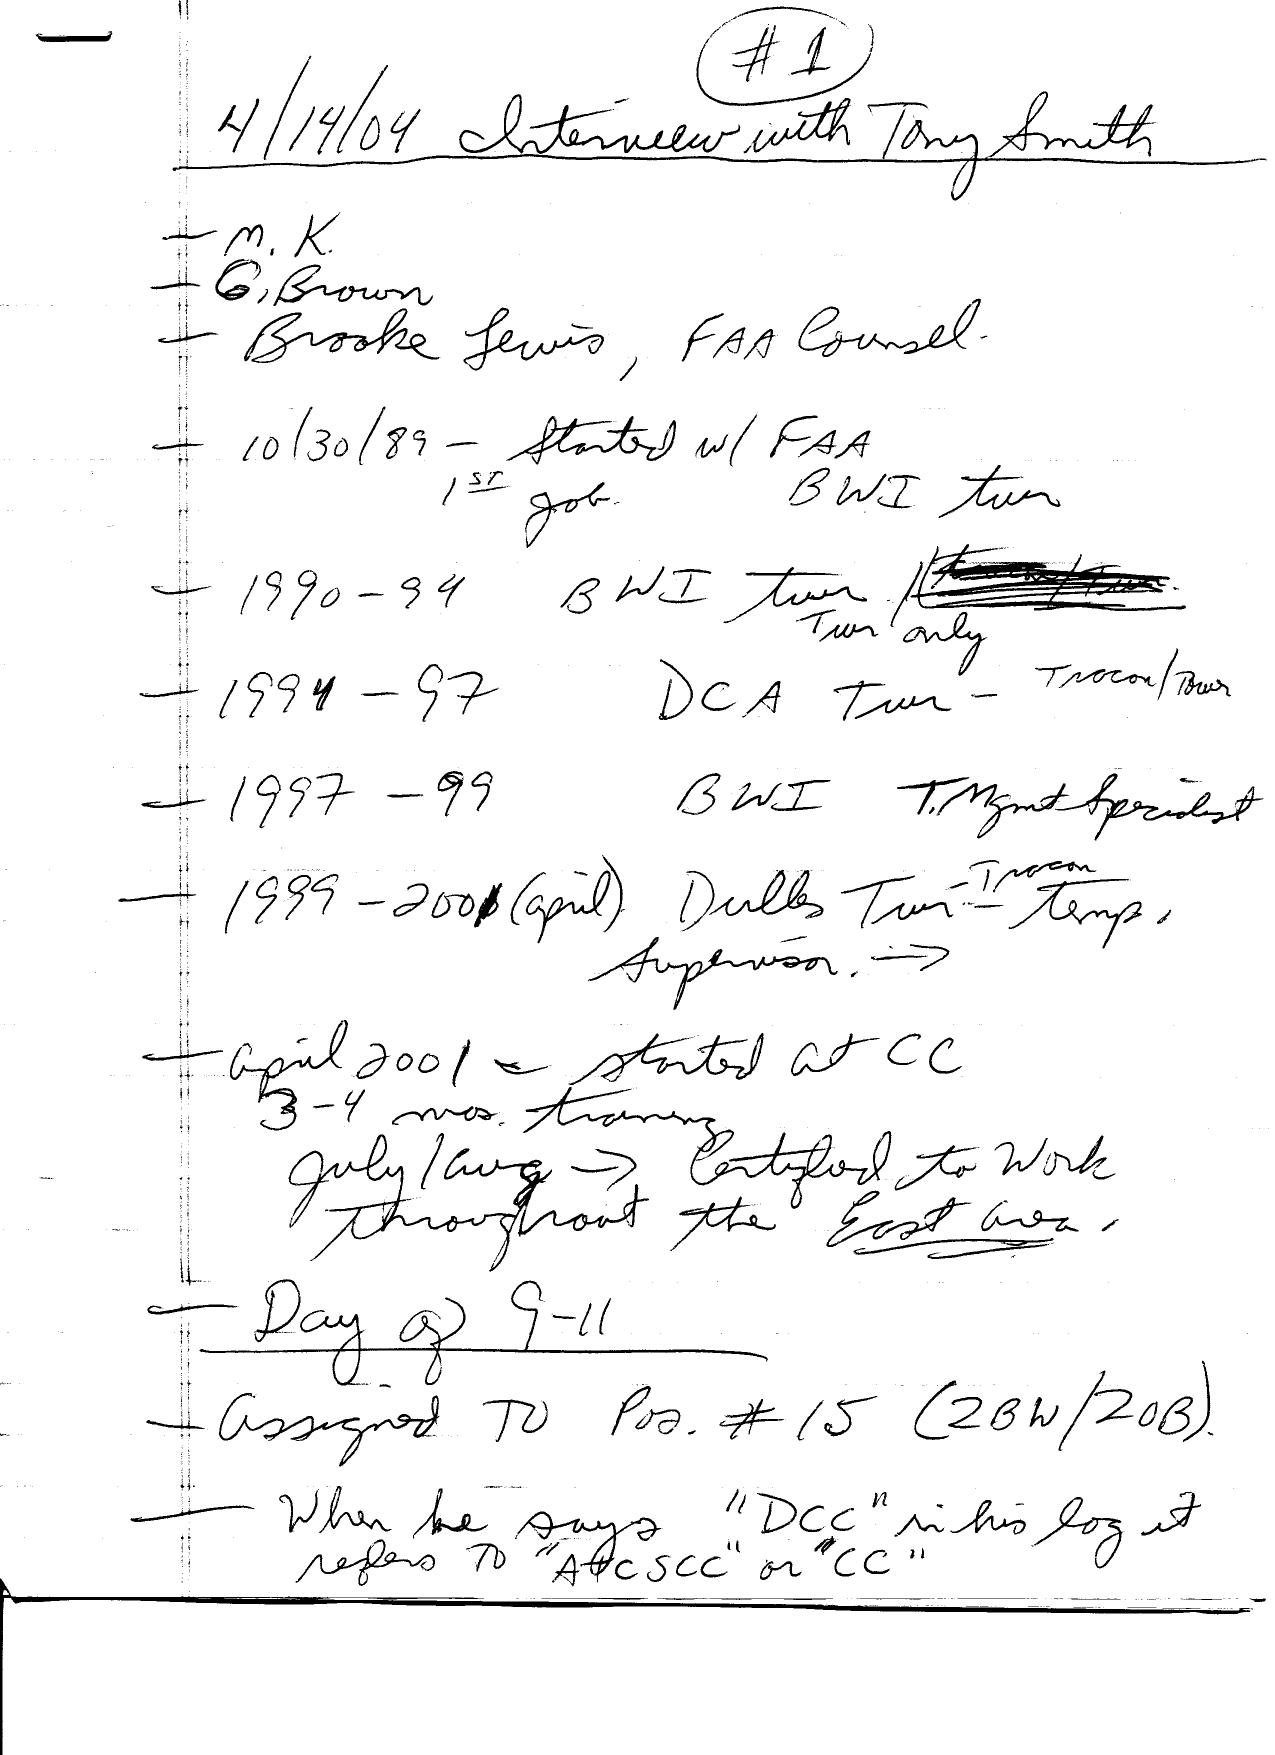 #1
4/14/04 Interview with Tony Smith
— M. K.
— G. Brown
— Brooke Lewis, FAA Counsel.
— 10/30/89 — Started w/ FAA
1ST job. BWI twr
— 1990-94 BWI twr /
Twr only
— 1994-97 DCA Twr - Tracon/Tower
— 1997-99 BWI T.Mgmt Specialist
— 1999-2001 (april) Dulles Twr - Tracon - temp.
Supervisor. →
— april 2001 - started at CC
3-4 mos. training
July/Aug → Certified to Work
throughout the East area.
— Day of 9-11
— assigned TO Pos. #15 (ZBW/ZOB).
— When he says "DCC" in his log it
refers TO "ATCSCC" or "CC"